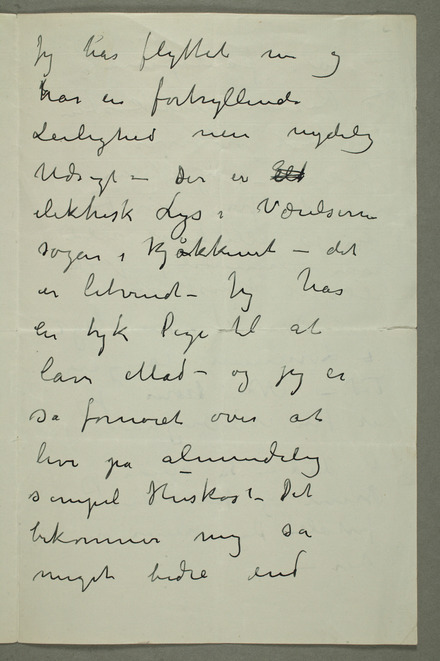 Jeg har flyttet nu og
har en fortryllende
Leilighed men nydelig
Udsigt – Der er
elektrisk Lys i Værelserne
sogar i Kjøkkenet – det
er letvindt – Jeg har
en tyk Pige til at
lave Mad – og jeg er
sa fornøiet over at
leve pa almindelig
simpel Huskost – Det
bekommer mig sa
meget bedre end